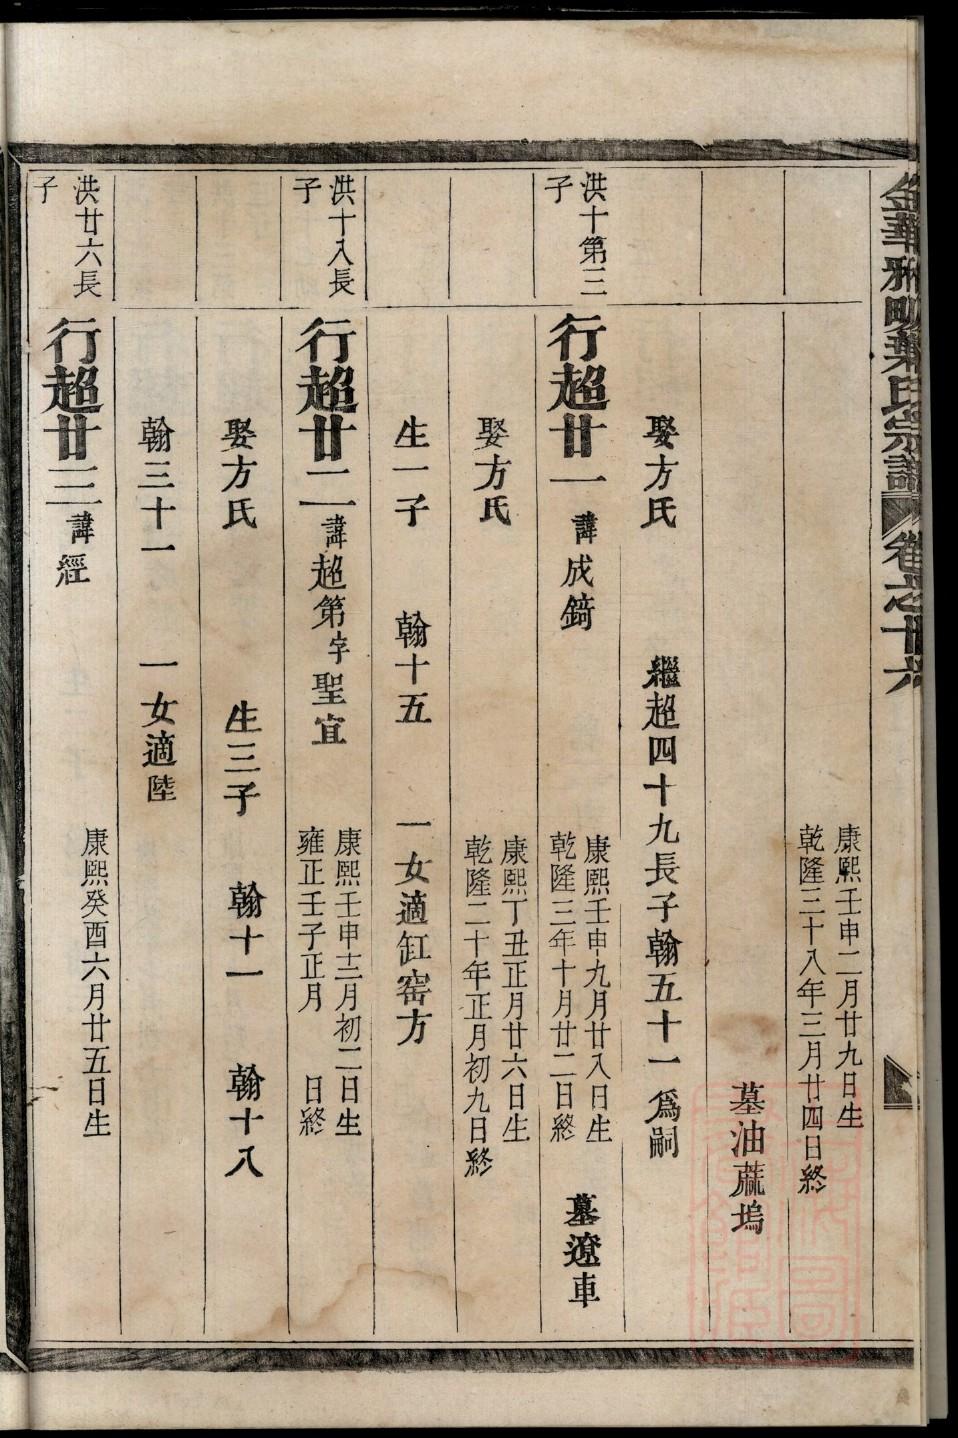 金華雅畈葉氏宗譜 卷之十六
康熙壬申二月廿九日生
乾隆三十八年三月廿四日終
墓油蔴塢
娶方氏 繼超四十九長子翰五十一爲嗣
洪十第三子
行超廿一 諱成錡
康熙壬申九月廿八日生
乾隆三年十月廿二日終
墓遼車
娶方氏
康熙丁丑正月廿六日生
乾隆二十年正月初九日終
生一子 翰十五 一女適缸窰方
洪十八長子
行超廿二 諱超第字聖宜
康熙壬申十二月初二日生
雍正壬子正月 日終
娶方氏 生三子 翰十一 翰十八
翰三十一 一女適陸
洪廿六長子
行超廿三 諱經
康熙癸酉六月廿五日生